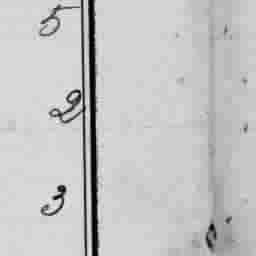 5
2
3